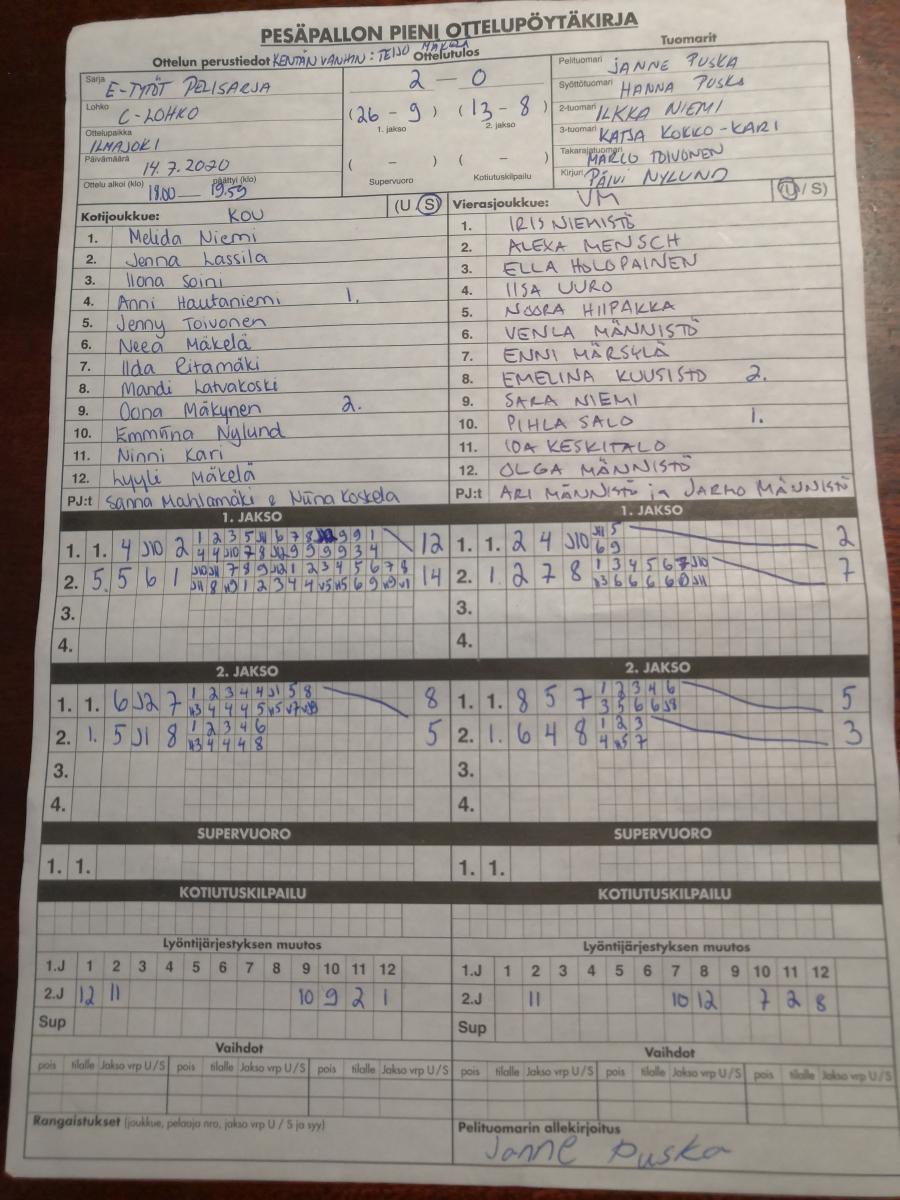 PESÄPALLON PIENI OTTELUPÖYTÄKIRJA
Ottelun perustiedot KENTÄN VANHIN: TEIJO MÄKELÄ
Ottelutulos
Tuomarit
Sarja E-TYTÖT PELISARJA
2 – 0
Pelituomari JANNE PUSKA
Lohko C-LOHKO
(26 – 9) (13 – 8)
Syöttötuomari HANNA PUSKA
1. jakso 2. jakso
2-tuomari ILKKA NIEMI
Ottelupaikka ILMAJOKI
3-tuomari KATJA KOKKO-KARI
Päivämäärä 14.7.2020
( – ) ( – )
Takarajatuomari MARCO TOIVONEN
Ottelu alkoi (klo) 18.00 — päättyi (klo) 19.59
Supervuoro Kotiutuskilpailu
Kirjuri PÄIVI NYLUND
Kotijoukkue: KOU (U / S)
Vierasjoukkue: VM (U / S)
1. Melida Niemi
2. Jenna Lassila
3. Ilona Soini
4. Anni Hautaniemi 1.
5. Jenny Toivonen
6. Neea Mäkelä
7. Iida Ritamäki
8. Mandi Latvakoski
9. Oona Mäkynen 2.
10. Emmiina Nylund
11. Ninni Kari
12. Lyyli Mäkelä
PJ:t Sanna Mahlamäki & Niina Koskela
1. IRIS NIEMISTÖ
2. ALEXA MENSCH
3. ELLA HOLOPAINEN
4. IISA UURO
5. NOORA HIIPAKKA
6. VENLA MÄNNISTÖ
7. ENNI MÄRSYLÄ
8. EMELINA KUUSISTO 2.
9. SARA NIEMI
10. PIHLA SALO 1.
11. IDA KESKITALO
12. OLGA MÄNNISTÖ
PJ:t ARI MÄNNISTÖ ja JARKO MÄNNISTÖ
1. JAKSO
1. 1. 4 J10 2 12
2. 5. 5 6 1 14
3.
4.
1. JAKSO
1. 1. 2 4 J10 2
2. 1. 2 7 8 7
3.
4.
2. JAKSO
1. 1. 6 J2 7 1 2 3 4 4 J1 5 8 8
2. 1. 5 J1 8 1 2 3 4 6 5
3 4 4 4 8
3.
4.
2. JAKSO
1. 1. 8 5 7 1 2 3 4 6 5
3 5 6 6 J8
2. 1. 6 4 8 1 2 3 3
4 5 7
3.
4.
SUPERVUORO
1. 1.
SUPERVUORO
1. 1.
KOTIUTUSKILPAILU
KOTIUTUSKILPAILU
Lyöntijärjestyksen muutos
1.J 1 2 3 4 5 6 7 8 9 10 11 12
2.J 12 11 10 9 2 1
Sup
Lyöntijärjestyksen muutos
1.J 1 2 3 4 5 6 7 8 9 10 11 12
2.J 11 10 12 7 2 8
Sup
Vaihdot
pois tilalle Jakso vrp U/S pois tilalle Jakso vrp U/S pois tilalle Jakso vrp U/S
Vaihdot
pois tilalle Jakso vrp U/S pois tilalle Jakso vrp U/S pois tilalle Jakso vrp U/S
Rangaistukset (joukkue, pelaaja nro, jakso vrp U / S ja syy)
Pelituomarin allekirjoitus
Janne Puska